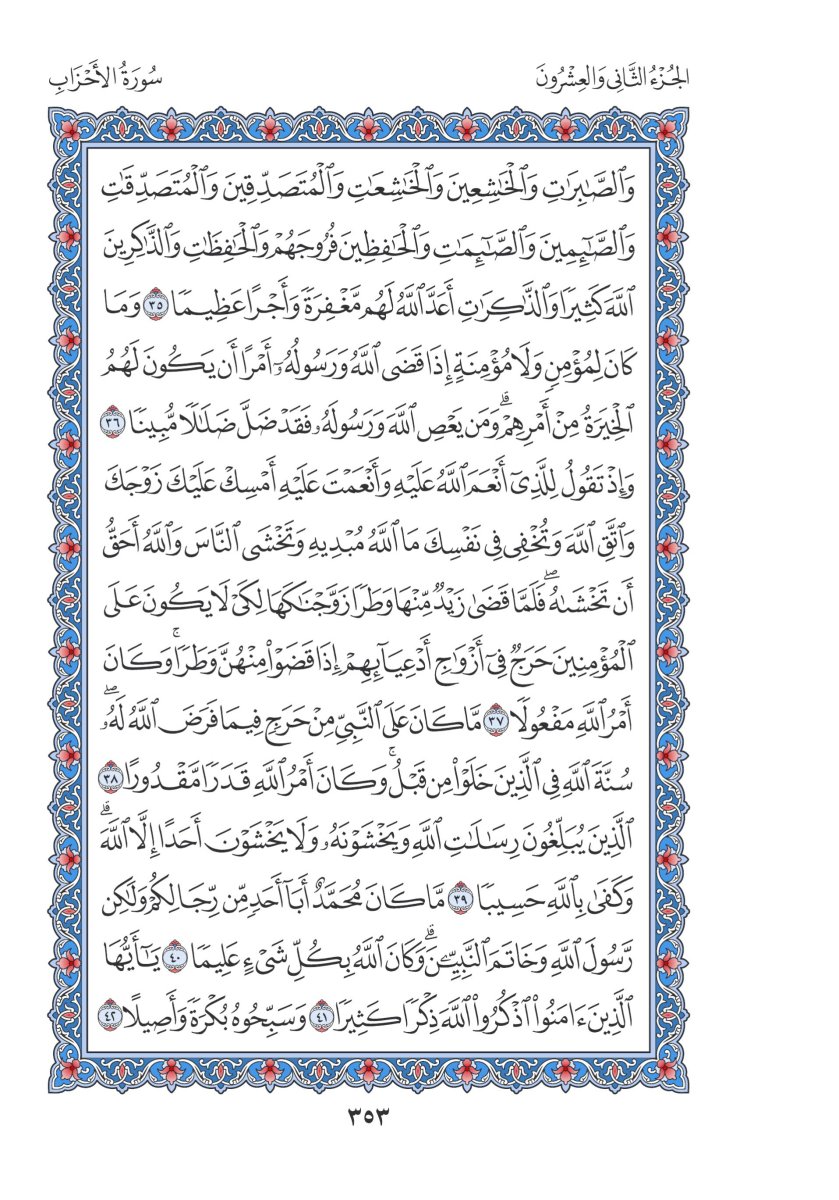 الجُزْءُ الثَّانِي وَالعِشْرُونَ
سُورَةُ الأَحْزَابِ
وَٱلصَّٰبِرَٰتِ وَٱلْخَٰشِعِينَ وَٱلْخَٰشِعَٰتِ وَٱلْمُتَصَدِّقِينَ وَٱلْمُتَصَدِّقَٰتِ
وَٱلصَّٰٓئِمِينَ وَٱلصَّٰٓئِمَٰتِ وَٱلْحَٰفِظِينَ فُرُوجَهُمْ وَٱلْحَٰفِظَٰتِ وَٱلذَّٰكِرِينَ
ٱللَّهَ كَثِيرًا وَٱلذَّٰكِرَٰتِ أَعَدَّ ٱللَّهُ لَهُم مَّغْفِرَةً وَأَجْرًا عَظِيمًا ٣٥ وَمَا
كَانَ لِمُؤْمِنٍ وَلَا مُؤْمِنَةٍ إِذَا قَضَى ٱللَّهُ وَرَسُولُهُۥٓ أَمْرًا أَن يَكُونَ لَهُمُ
ٱلْخِيَرَةُ مِنْ أَمْرِهِمْۗ وَمَن يَعْصِ ٱللَّهَ وَرَسُولَهُۥ فَقَدْ ضَلَّ ضَلَٰلًا مُّبِينًا ٣٦
وَإِذْ تَقُولُ لِلَّذِىٓ أَنْعَمَ ٱللَّهُ عَلَيْهِ وَأَنْعَمْتَ عَلَيْهِ أَمْسِكْ عَلَيْكَ زَوْجَكَ
وَٱتَّقِ ٱللَّهَ وَتُخْفِى فِى نَفْسِكَ مَا ٱللَّهُ مُبْدِيهِ وَتَخْشَى ٱلنَّاسَ وَٱللَّهُ أَحَقُّ
أَن تَخْشَىٰهُۖ فَلَمَّا قَضَىٰ زَيْدٌ مِّنْهَا وَطَرًا زَوَّجْنَٰكَهَا لِكَىْ لَا يَكُونَ عَلَى
ٱلْمُؤْمِنِينَ حَرَجٌ فِىٓ أَزْوَٰجِ أَدْعِيَآئِهِمْ إِذَا قَضَوْا۟ مِنْهُنَّ وَطَرًاۚ وَكَانَ
أَمْرُ ٱللَّهِ مَفْعُولًا ٣٧ مَّا كَانَ عَلَى ٱلنَّبِىِّ مِنْ حَرَجٍ فِيمَا فَرَضَ ٱللَّهُ لَهُۥۖ
سُنَّةَ ٱللَّهِ فِى ٱلَّذِينَ خَلَوْا۟ مِن قَبْلُۚ وَكَانَ أَمْرُ ٱللَّهِ قَدَرًا مَّقْدُورًا ٣٨
ٱلَّذِينَ يُبَلِّغُونَ رِسَٰلَٰتِ ٱللَّهِ وَيَخْشَوْنَهُۥ وَلَا يَخْشَوْنَ أَحَدًا إِلَّا ٱللَّهَۗ
وَكَفَىٰ بِٱللَّهِ حَسِيبًا ٣٩ مَّا كَانَ مُحَمَّدٌ أَبَآ أَحَدٍ مِّن رِّجَالِكُمْ وَلَٰكِن
رَّسُولَ ٱللَّهِ وَخَاتَمَ ٱلنَّبِيِّـۧنَۗ وَكَانَ ٱللَّهُ بِكُلِّ شَىْءٍ عَلِيمًا ٤٠ يَٰٓأَيُّهَا
ٱلَّذِينَ ءَامَنُوا۟ ٱذْكُرُوا۟ ٱللَّهَ ذِكْرًا كَثِيرًا ٤١ وَسَبِّحُوهُ بُكْرَةً وَأَصِيلًا ٤٢
٣٥٣